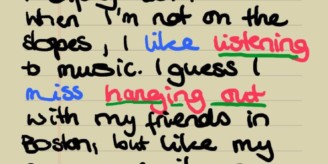 when I'm not on the
slopes, I like listening
to music. I guess I
miss hanging out
with my friends in
Boston, but like my